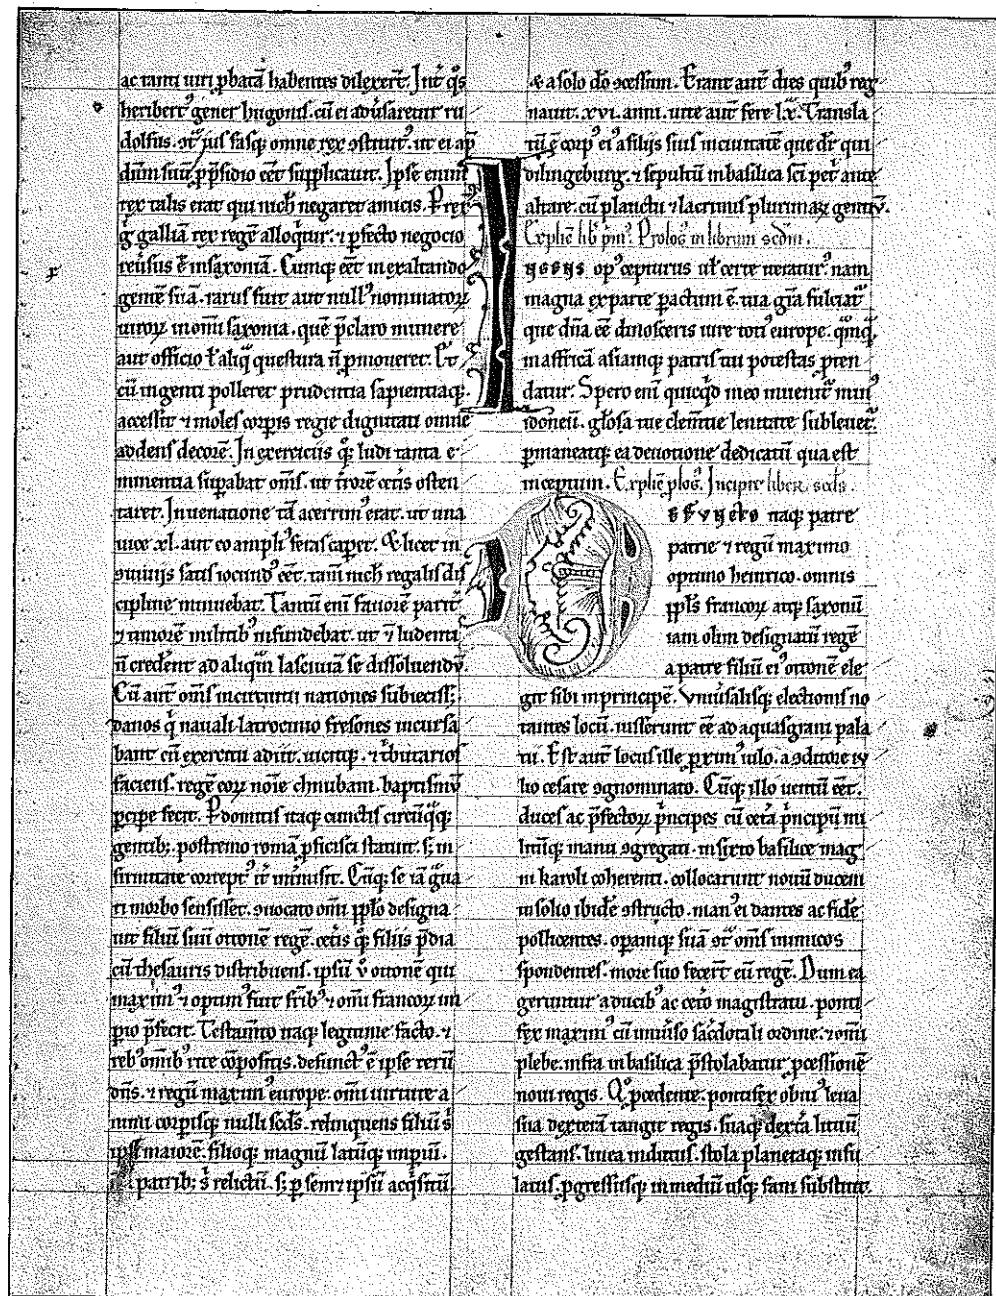 ac tanti uiri ꝓbatā habentes dilexer̄t. Int̾ q̊s
heribert᷒ gener hugonis. cū ei adu̾saretur ru
dolfus. ꝯtͣ ius fasq; omne rex ꝯstruit᷒. ut ei ap̄
dn̄m suū p̄sidio eēt supplicauit. Ipse enim
rex talis erat qui nich̄ negaret amicis. P̾rex̾
g̊ galliā rex regē alloquit᷒. ⁊ ꝑfecto negocio
reu̾sus ē in saxoniā. Cumq; eēt in exaltando
gentē suā. rarus fuit aut null᷒ nominatoꝝ
uiroꝝ in om̄i saxonia. quē p̄claro munere
aut officio ł aliq̄ questura n̄ ꝓmoueret. Et
cū ingenti polleret prudentia sapientiaq;
accessit ⁊ moles corpis regie dignitati omnē
addens decorē. In exerciciis q̊q; ludi tanta e
minentia suꝑabat om̄s. ut t̾rorē cet̾is osten
taret. In uenatione tā acerrim᷒ erat. ut una
uice xl. aut eo ampli᷒ feras caꝑet. Et licet in
ꝯuiuiis satis iocund᷒ eēt. tam̄ nich̄ regalis dis
cipline minuebat. Tantū eni᷒ fauorē parit̾
⁊ timorē militib᷒ infundebat. ut ⁊ ludenti
n̄ crederent ad aliqͣm lasciuiā se dissoluendū.
Cū aut̄ om̄s in circuitu nationes subiecisset;
danos q̇ nauali latrocinio fresones incursa
bant cū exercitu adiit. uicitq;. ⁊ t̾butarios
faciens. regē eoꝝ noīe chnubam. baptismū
ꝑcipe fecit. P̾domitis itaq; cunctis circūq̄q;
gentib;. postremo romā ꝓficisci statuit. s; in
firmitate correpꝰ it̾ int̾misit. Cūq; se iā gͣua
ri morbo sensisset. ꝯuocato om̄i pplo designa
uit filiū suū ottonē regē. cet̾is q̊q; filiis p̄dia
cū thesauris distribuens. ipsū ū ottonē qui
maxim᷒ ⁊ optim᷒ fuit fr̄ib᷒ ⁊ om̄i francoꝝ im
ꝑio p̄fecit. Testam̄to naq; legitime facto. ⁊
reb᷒ om̄ib᷒ rite cōpositis. defunct᷒ ē ipse rerū
dn̄s. ⁊ regū maxim᷒ europe. om̄i uirtute a
nimi corꝑisq; nulli scd̄s. relinquens filiū s̄
ipsi maiorē. filioq; magnū latūq; imꝑiū.
patrib; s̄ relictū. s; ꝑ semet ipsū acq̇situ
& a solo dō ꝯcessum. Erant aut̄ dies quib᷒ reg
nauit. xvi. anni. uite aut̄ fere .lx. Transla
tū ē corp᷒ ei᷒ a filiis suis in ciuitatē que dr̄ qui
dilingeburg. ⁊ sepultū in basilica sc̄i petri ante
altare. cū planctu ⁊ lacrimis plurimaꝝ gentiū.
Explic̄ lib̄ p̄m᷒. Prolog᷒ in librum scd̄m.
Iussus op᷒ cepturus ut certe ueratur᷒. nam
magna ex parte ꝑactum ē. tua gͣia fulciat᷒
que dn̄a eē dinosceris iure toti᷒ europe. quāq̄
in affricā asiamq; patris tui potestas p̄ten
datur. Spero eni᷒ quicq̇d meo inuenit᷒ min᷒
idoneū. gl̾osa tue clem̄tie lenitate subleuet᷒.
ꝑmaneatq; ea deuotione dedicatū qua est
inceptum. Explic̄ plog᷒. Incipit liber scd̄s.
Defuncto naq; patre
patrie ⁊ regū maximo
optimo heinrico. omnis
ppl̄s francoꝝ atq; saxonū
iam olim designatū regē
a patre filiū ei᷒ ottonē ele
git sibi in principē. Vniu̾salisq; electionis no
tantes locū. iusserunt eē ad aquasgrani pala
tii. Est aut̄ locus ille ꝓxim᷒ iulo. a ꝯditore iu
lio cesare ꝯgnominato. Cūq; illo uentū eēt.
duces ac p̄fectoꝝ p̄ncipes cū cet̾a p̄ncipū mi
litūq; manu ꝯgregati. in sixto basilice mag
ni karoli coherenti. collocarunt nouū ducem
in solio ibidē ꝯstructo. man᷒ ei dantes ac fidē
pollicentes. oꝑamq; suā ꝯtͣ om̄s inimicos
spondentes. more suo fecer̄t eū regē. Dum ea
geruntur a ducib᷒ ac cet̾o magistratu. ponti
fex maxim᷒ cū uniu̾so sac̾dotali ordine. ⁊ om̄i
plebe. infra in basilica p̄stolabatur ꝓcessionē
noui regis. Q̊ ꝓcedente. pontifex obui᷒ leua
sua dexterā tangit regis. suaq; dext̾a lituū
gestans. linea indutus. stola planetaq; infu
latus. ꝓgressusq; in mediū usq; fani substitit.